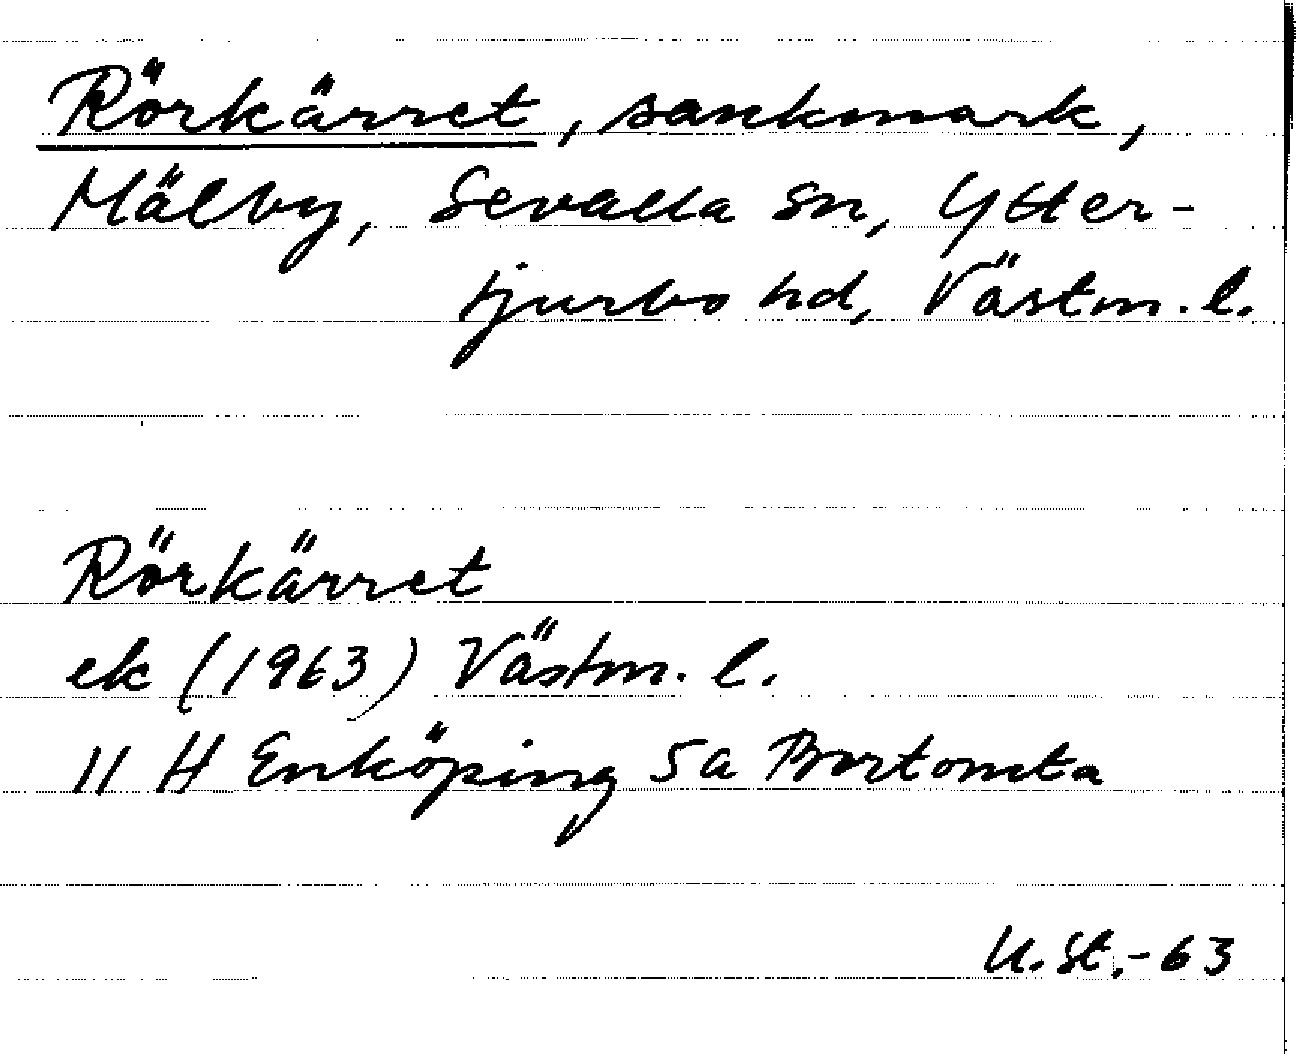 Rörkärret, sankmark,
Mälby, Sevalla sn, Ytter-
tjurbo hd, Västm. l.
Rörkärret
ek (1963) Västm. l.
11 H Enköping 5a Bortomta
U. St. -63